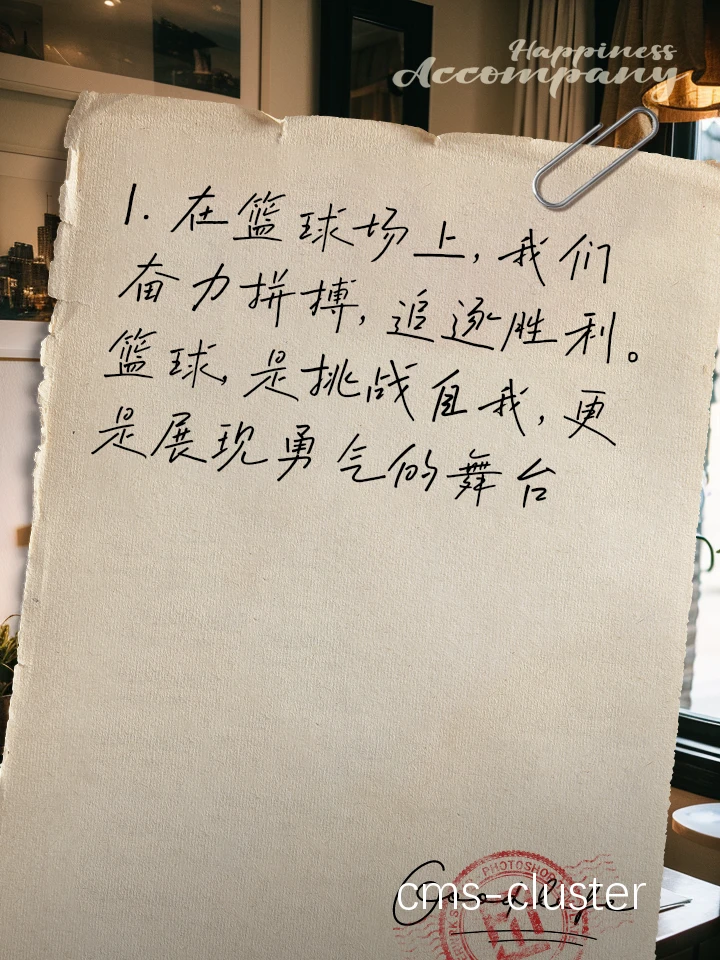 Happiness
Accompany
1. 在篮球场上, 我们
奋力拼搏, 追逐胜利。
篮球, 是挑战自我, 更
是展现勇气的舞台
PHOTOSHOP
cms-cluster